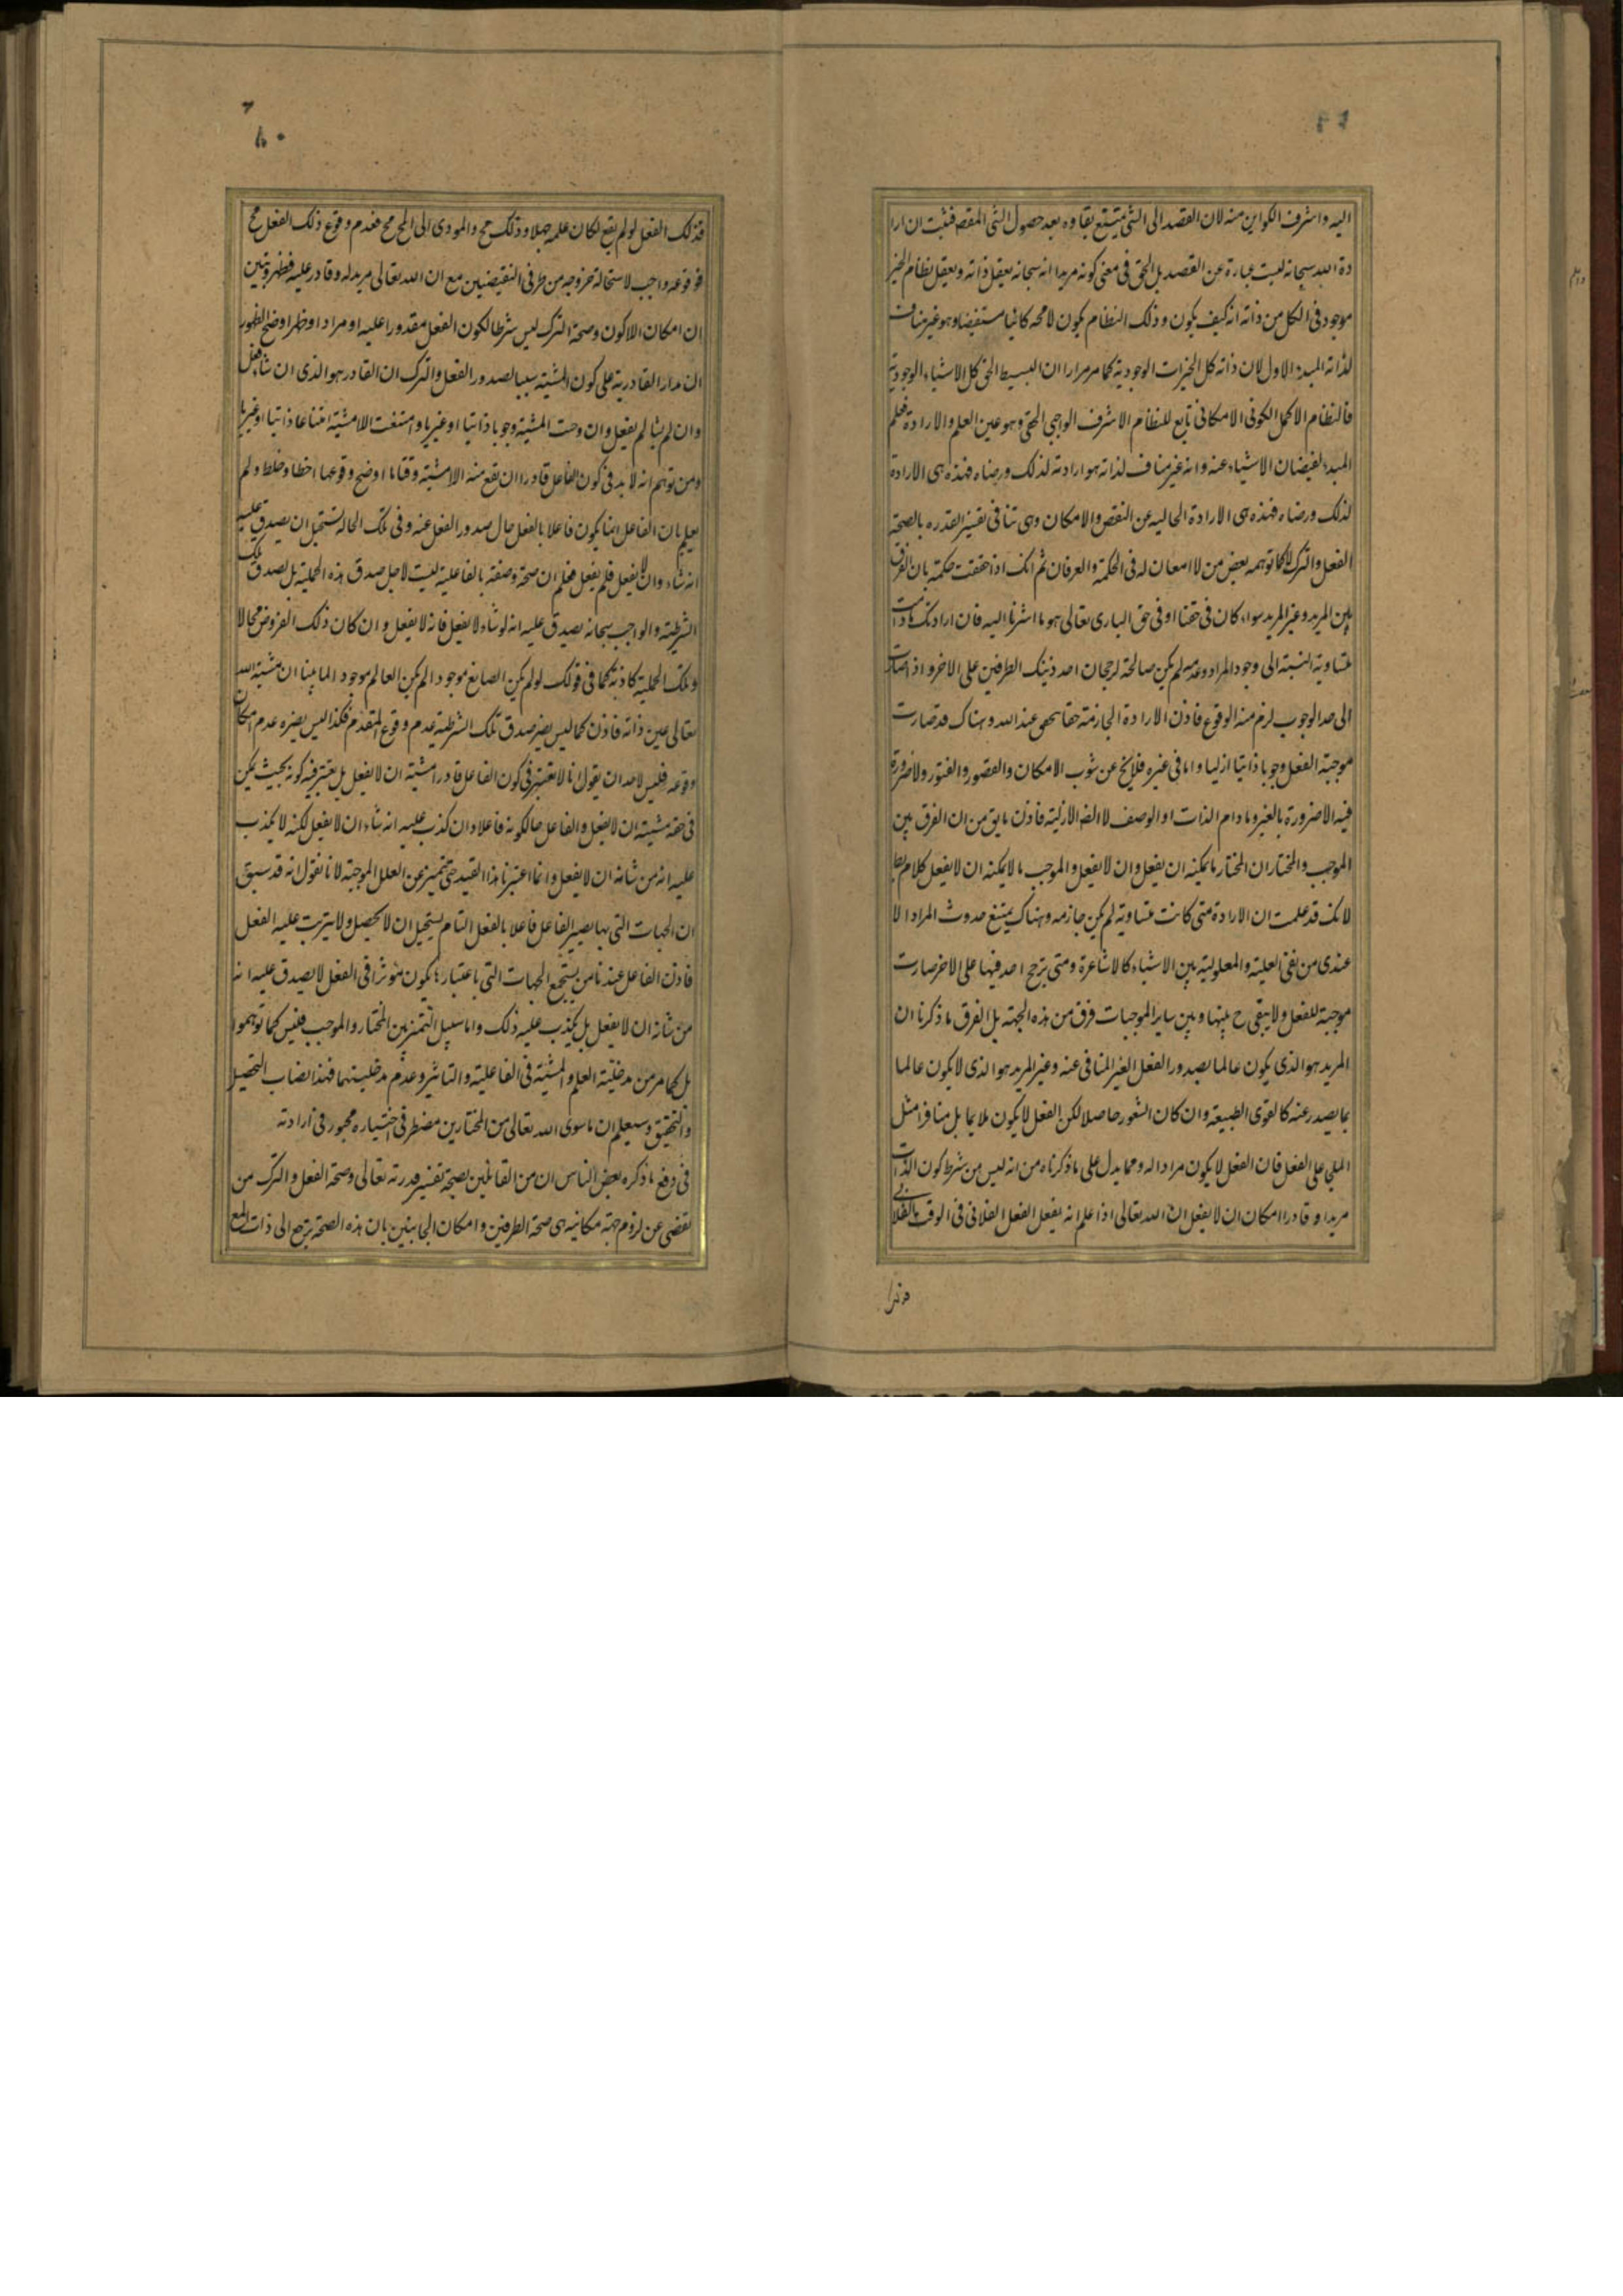 اليه واشرف الكواين منه لان القصد الى الشئ يمتنع بقاوه بعد حصول الشئ المقصد فثبت ان ارا
دة الله سبحانه ليست عبارة عن القصد بل الحق فى معنى كونه مريدا انه سبحانه يعقل ذاته ويعقل نظام الخير
موجود فى الكل من ذاته انه كيف يكون وذلك النظام يكون لامحه كائنا مستفيضا وهو غير مناف
لذاته المبدء الاول لان ذاته كل الخيرات الوجودية كما مر مرارا ان البسيط الحق كل الاشياء الوجودية
فالنظام الاكمل الكونى الامكانى تابع للنظام الاشرف الواجبى الحقى وهو عين العلم والارادة فعلم
المبدء لفيضان الاشياء عنه وانه غير مناف لذاته هو ارادته لذلك ورضاه فهذه هى الارادة
لذلك ورضاه فهذه هى الارادة الخاليه عن النقص والامكان وهى تنافى تفسير القدره بالصحته
الفعل والترك لا كما توهمه بعض من لا امعان له فى الحكمة والعرفان ثم انك اذا حققت حكمته بان الفرق
بين المريد وغير المريد سواء كان فى حقنا او فى حق البارى تعالى هو ما اشرنا اليه فان ارادتك مادامت
متساوية النسبة الى وجود المراد وعدمه لم يكن صالحة لرجحان احد ذينك الطرفين على الاخر واذا صارت
الى حد الوجوب لزم منه الوقوع فاذن الارادة الجازمة حقا هى عند الله وهناك قد صارت
موجبة الفعل وجوبا ذاتيا ازليا واما فى غيره فلا يخ عن شوب الامكان والقصور والفتور ولا ضرورة
فيه الا ضرورة بالغير وما دام الذات او الوصف لا الضه الازلية فاذن ما يق من ان الفرق بين
الموجب والمختار ان المختار ما يمكنه ان يفعل وان لا يفعل والموجب ما لا يمكنه ان لا يفعل كلام بط
لانك قد علمت ان الارادة متى كانت متساوية لم يكن جازمه وهناك يمتنع حدوث المراد الا
عندى من نفى العلية والمعلولية بين الاشياء كالاشاعرة ومتى يترجح احد فيها على الاخر صارت
موجبة للفعل ولا يبقى ح بينها وبين ساير الموجبات فرق من هذه الجهته بل الفرق ما ذكرنا ان
المريد هو الذى يكون عالما بصدور الفعل الغير المنافى عنه وغير المريد هو الذى لا يكون عالما
بما يصدر عنه كالقوى الطبيعة وان كان الشعور حاصلا لكن الفعل لا يكون ملايما بل منافرا مثل
الملجى على الفعل فان الفعل لا يكون مرادا له ومما يدل على ما ذكرناه من انه ليس من شرط كون الذات
مريدا وقادرا امكان ان لا يفعل ان الله تعالى اذا علم انه يفعل الفعل الفلانى فى الوقت الفلانى
فذلك الفعل لو لم يقع لكان علمه جهلا وذلك مح والمودى الى المح مح فعدم وقوع ذلك الفعل مح
فوقوعه واجب لاستحالة خروجه من طرفى النقيضين مع ان الله تعالى مريد له وقادر عليه فظهر وتبين
ان امكان اللاكون وصحة الترك ليس شرطا لكون الفعل مقدورا عليه او مرادا وظهرا وضح الظهور
ان مدار القادرية على كون المشية سببا لصدور الفعل والترك ان القادر هو الذى ان شاء فعل
وان لم يشا لم يفعل وان وجبت المشية وجوبا ذاتيا او غيريا وامتنعت اللامشية امتناعا ذاتيا او غيريا
ومن توهم انه لا بد فى كون الفاعل قادرا ان تقع منه اللامشية وقتا ما اوضح وقوعها اخطا وخلط ولم
يعلم بان الفاعل انما يكون فاعلا بالفعل حال صدور الفعل عنه وفى تلك الحالة تستحيل ان يصدق عليه
انه شاء وان لا يفعل فلم يفعل فعلم ان صحة وصفته بالفاعلية ليست لاجل صدق هذه الحملية بل لصدق تلك
الشرطية والواجب سبحانه يصدق عليه انه لو شاء لا يفعل فانه لا يفعل وان كان ذلك الفروض محالا
وتلك الحملية كاذبة كما فى قولك لو لم يكن الصانع موجودا لم يكن العالم موجودا لما بينا ان مشية الله
تعالى عين ذاته فاذن كما ليس يضر صدق تلك الشرطية عدم وقوع المقدم فكذا ليس يضره عدم امكان
وقوعه فليس لاحد ان يقول انا لا نعتبر فى كون الفاعل قادرا مشية ان لا يفعل بل يعتبر فيه كونه بحيث يمكن
فى حقه مشية ان لا يفعل والفاعل حالكونه فاعلا وان كذب عليه انه شاء ان لا يفعل لكنه لا يكذب
عليه انه من شانه ان لا يفعل وانما اعتبرنا هذا القيد حتى يتميز عن العلل الموجبة لانا نقول انه قد سبق
ان الجهات التى بها يصير الفاعل فاعلا بالفعل التام يستحيل ان لا تحصل ولا يترتب عليه الفعل
فاذن الفاعل عند نامن يستجمع الجهات التى باعتبارها يكون موثرا فى الفعل لا يصدق عليه انه
من شانه ان لا يفعل بل يكذب عليه ذلك واما سبيل التميز بين المختار والموجب فليس كما توهموا
بل كما مر من مدخلية العلم والمشية فى الفاعلية والتاثير وعدم مدخليتهما فهذا نصاب التحصيل
والتحقيق وسيعلم ان ماسوى الله تعالى من المختارين مضطر فى اختياره مجبور فى ارادته
فى دفع ما ذكره بعض الناس ان من القائلين بصحة تفسير قدرته تعالى وصحة الفعل والترك من
تفصى عن لزوم جهة مكانيه هى صحة الطرفين وامكان الجانبين بان هذه الصحة يرجع الى ذات المع